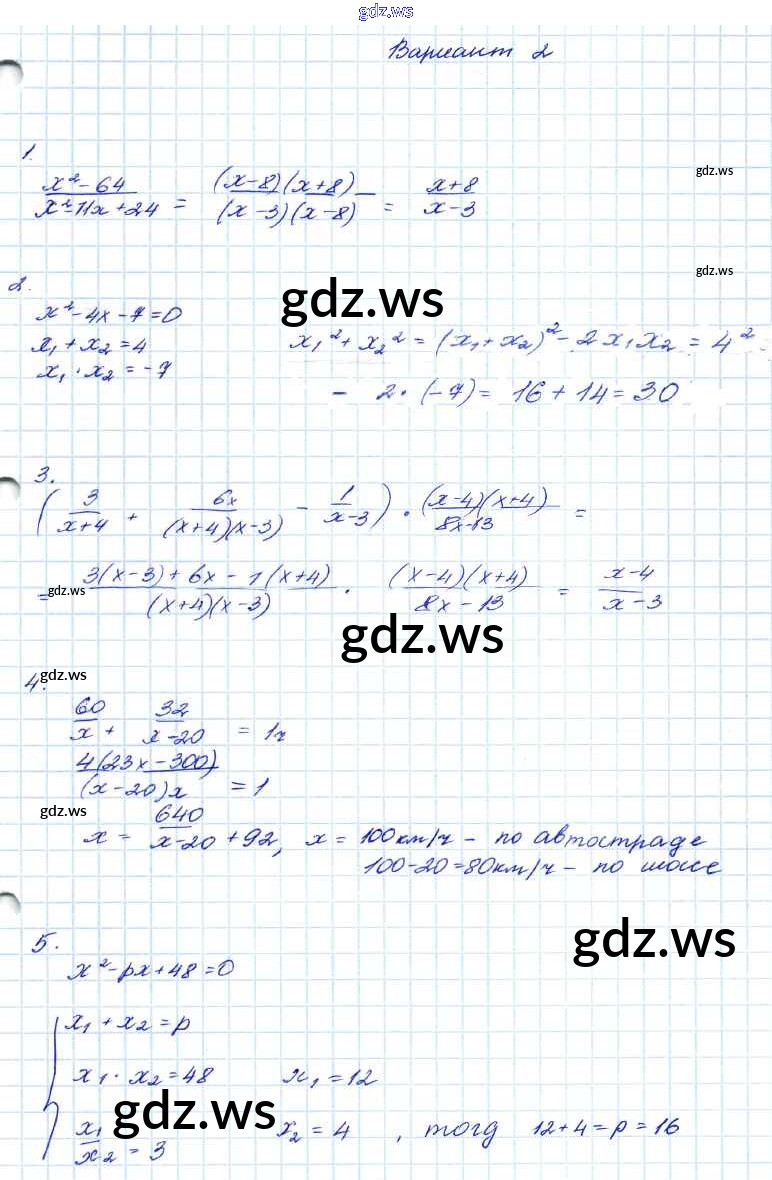 gdz.ws
Вариант 2
1.
gdz.ws
x² - 64 / x² - 11x + 24 = (x-8)(x+8) / (x-3)(x-8) = x+8 / x-3
gdz.ws
2.
x² - 4x - 7 = 0
gdz.ws
x₁ + x₂ = 4
x₁ · x₂ = -7
x₁² + x₂² = (x₁ + x₂)² - 2x₁x₂ = 4²
- 2 · (-7) = 16 + 14 = 30
3.
(3 / x+4 + 6x / (x+4)(x-3) - 1 / x-3) · (x-4)(x+4) / 8x-13 =
= 3(x-3) + 6x - 1(x+4) / (x+4)(x-3) · (x-4)(x+4) / 8x-13 = x-4 / x-3
gdz.ws
gdz.ws
gdz.ws
4.
60 / x + 32 / x-20 = 1ч
4(23x - 300) / (x-20)x = 1
gdz.ws
x = 640 / x-20 + 92, x = 100км/ч - по автостраде
100-20=80км/ч - по шоссе
5.
gdz.ws
x² - px + 48 = 0
x₁ + x₂ = p
x₁ · x₂ = 48 x₁ = 12
gdz.ws
x₁ / x₂ = 3 x₂ = 4, тогд 12+4=p=16